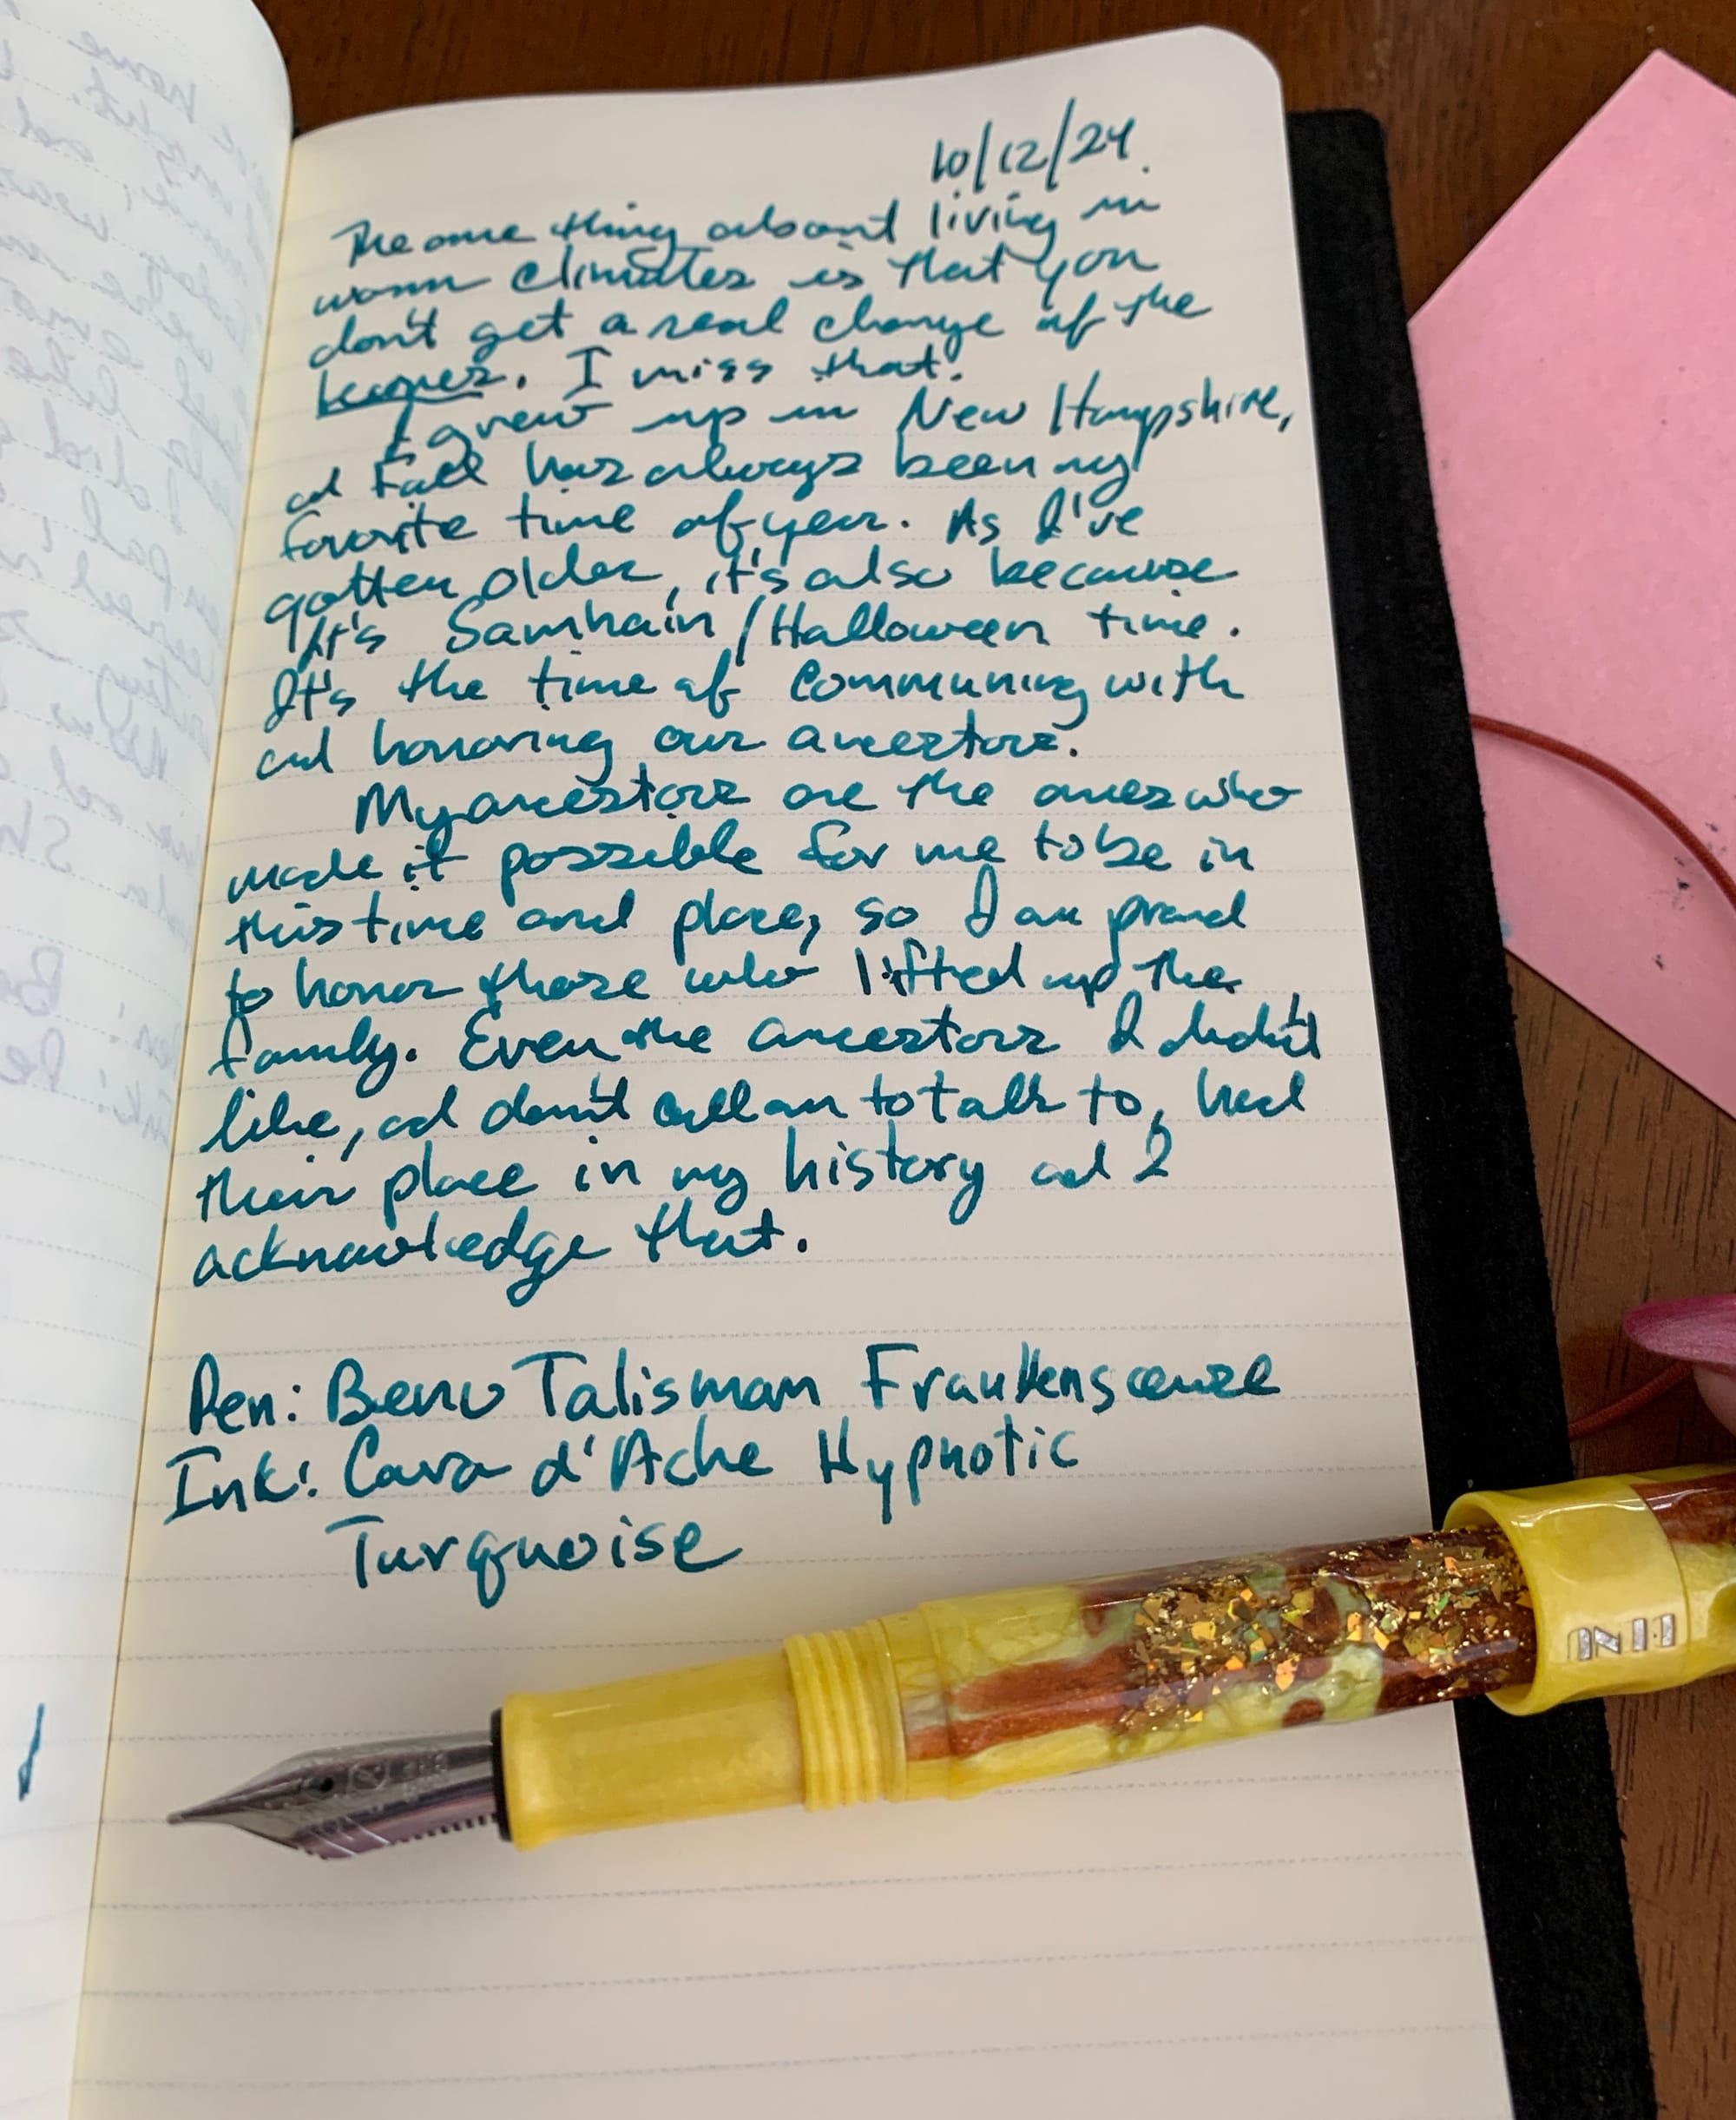 10/12/24.
The one thing about living in
warm climates is that you
don't get a real change of the
leaves. I miss that.
I grew up in New Hampshire,
ad Fall has always been my
favorite time of year. As I've
gotten older, it's also because
it's Samhain/Halloween time.
It's the time of communing with
and honoring our ancestors.
My ancestors are the ones who
made it possible for me to be in
this time and place, so I am proud
to honor those who lifted up the
family. Even the ancestors I didn't
like, ad don't call on to talk to, had
their place in my history ad I
acknowledge that.
Pen: Benu Talisman Frankenscense
Ink: Cara d'Ache Hypnotic
Turquoise